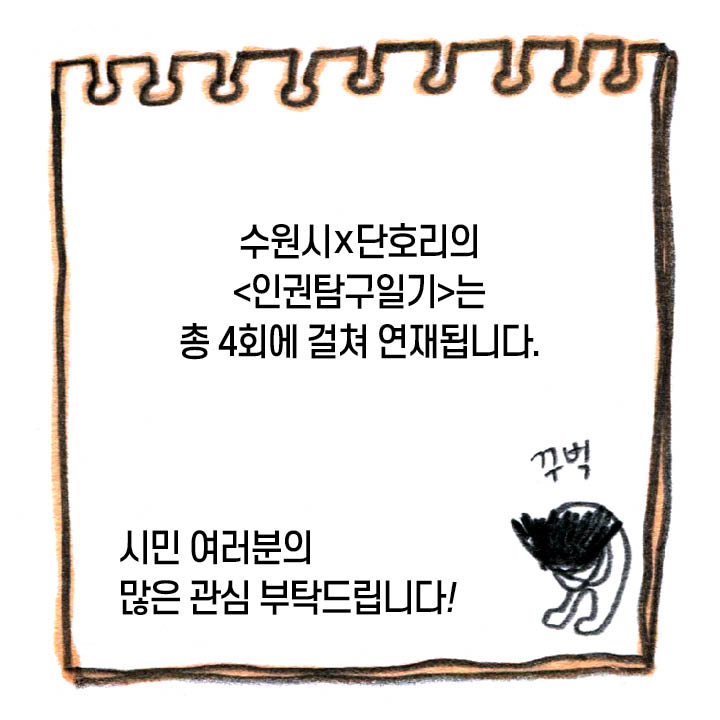 수원시x단호리의
<인권탐구일기>는
총 4회에 걸쳐 연재됩니다.
꾸벅
시민 여러분의
많은 관심 부탁드립니다!